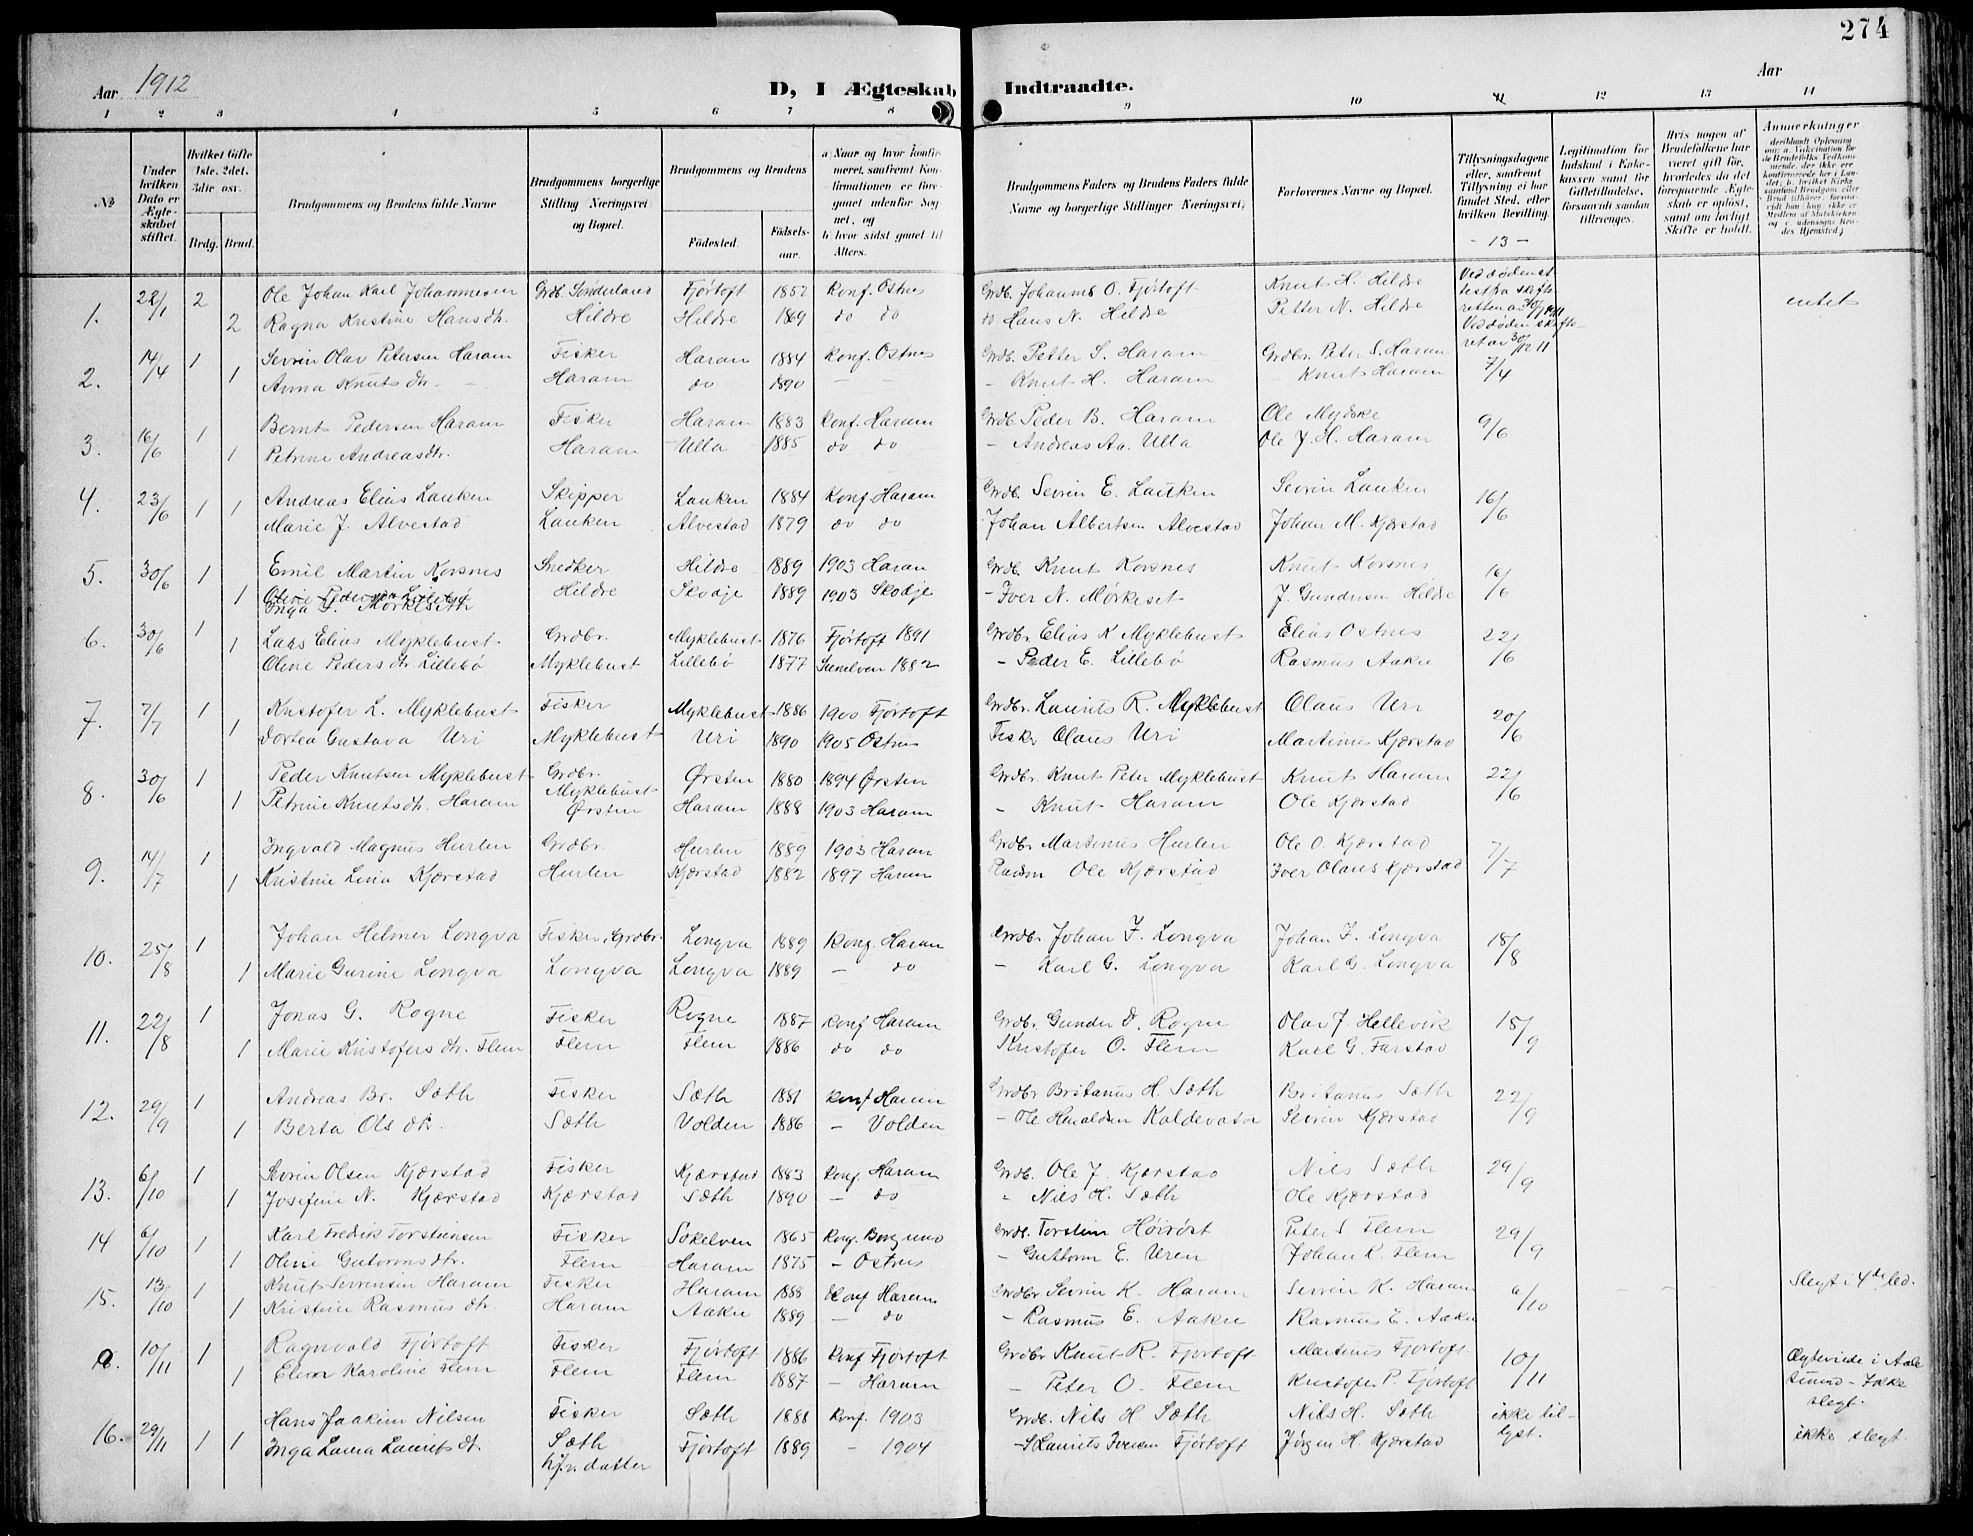 274
Aar 1912
D, I Ægteskab Indtraadte.
Aar
1 2 3 4 5 6 7 8 9 10 11 12 13 14
No
Under hvilken Dato er Ægteskabet stiftet.
Hvilket Gifte 1ste. 2det. 3die osv.
Brdg. Brud.
Brudgommens og Brudens fulde Navne
Brudgommens borgerlige Stilling Næringsvei og Bopæl.
Brudgommens og Brudens
Födested.
Födsels-aar.
a Naar og hvor konfirmeret, saafremt Konfirmationen er foregaaet udenfor Sognet, og
b hvor sidst gaaet til Alters.
Brudgommens Faders og Brudens Faders fulde Navne og borgerlige Stillinger Næringsvei,
Forlovernes Navne og Bopæl.
Tillysningsdagene eller, saafremt Tillysning ei har fundet Sted, efter hvilken Bevilling.
- 13 -
Legitimation for Indskud i Enkekassen samt for Giftetilladelse, forsaavidt saadan tiltrænges.
Hvis nogen af Brudefolkene har været gift för, hvorledes da det foregaaende Ægteskab er oplöst, samt om lovligt Skifte er holdt.
Anmerkninger
1. 22/1 2 Ole Johan Karl Johannesen Grdb. Sönderland Fjörtoft 1852 Konf. Ostnes Grdb. Johannes O. Fjörtoft Knut H. Hildre intet
2 Ragna Kristine Hansdtr. Hildre Hildre 1869 do do do Hans N. Hildre Petter N. Hildre
2. 14/4 1 Sevrin Olav Petersen Haram Fisker Haram 1884 Konf. Ostnes Grdb. Petter S. Haram Grdbr. Peter S. Haram 7/4
1 Anna Knutsdtr. - Haram do 1890 - - - Knut H. Haram Knut Haram
3. 16/6 1 Bernt Pedersen Haram Fisker Haram 1883 Konf. Haram Grdb. Peder B. Haram Ole Mydske 9/6
1 Petrine Andreasdtr. Haram Ulla 1885 do do - Andreas Aa. Ulla Ole J. H. Haram
4. 23/6 1 1 Andreas Elias Lauken Skipper Lauken 1884 Konf. Haram Grdb. Sevrin E. Lauken Sevrin Lauken 16/6
Marie J. Alvestad Lauken Alvestad 1879 do do Johan Albertsen Alvestad Johan M. Kjærstad
5. 30/6 1 Emil Martin Korsnes Snedker Hildre 1889 1903 Haram Grdb. Knut Korsnes Knut Korsnes 16/6
1 Inga I. Mørkeseth Hildre Skodje 1889 1903 Skodje - Iver N. Mørkeset J. Gundersen Hildre
6. 30/6 1 Lars Elias Myklebust Grdbr. Myklebust 1876 Fjörtoft 1891 Grdbr. Elias K Myklebust Elias Ostnes 22/6
1 Oline Pedersdtr. Lillebö Myklebust Lillebö 1877 Sunelven 1892 - Peder E. Lillebö Rasmus Aakre
7. 7/7 1 Kristofer L. Myklebust Fisker Myklebust 1886 1900 Fjörtoft Grdbr. Laurits R. Myklebust Olaus Uri 20/6
1 Dortea Gustava Uri Myklebust Uri 1890 1905 Ostnes Fisker Olaus Uri Martinus Kjærstad
8. 30/6 1 Peder Knutsen Myklebust Grdbr. Myklebust Ørsten 1880 1894 Ørsten Grdbr. Knut Peter Myklebust Knut Haram 22/6
1 Petrine Knutsdtr. Haram Ørsten Haram 1888 1903 Haram - Knut Haram Ole Kjærstad
9. 14/7 1 Ingvald Magnus Hurlen Grdbr. Hurlen 1889 1903 Haram Grdbr. Martinus Hurlen Ole O. Kjærstad 7/7
1 Kristine Lina Kjærstad Hurlen Kjærstad 1882 1897 Haram Ole Kjærstad Iver Olaus Kjærstad
10. 25/8 1 Johan Helmer Longva Fisker, Grdbr. Longva 1889 Konf. Haram Grdbr. Johan F. Longva Johan F. Longva 18/8
1 Marie Gurine Longva Longva Longva 1889 - do - Karl G. Longva Karl G. Longva
11. 22/8 1 Jonas G. Rogne Fisker Rogne 1887 Konf Haram Grdb. Gunder D. Rogne Olav J. Hellevik 15/9
1 Marie Kristofersdtr. Flem Flem Flem 1886 do do Kristofer O. Flem Karl G. Farstad
12. 29/9 1 Andreas Br. Sæth Fisker Sæth 1881 Konf Haram Grdbr Britanus H. Sæth Britanus Sæth 22/9
1 Berta Olsdtr. Sæth Volden 1886 - Volden - Ole Haraldsen Kaldevatn Sevrin Kjærstad
13. 6/10 1 Sevrin Olsen Kjærstad Fisker Kjærstad 1883 Konf Haram Grdb. Ole J. Kjærstad Nils Sæth 29/9
1 Josefine N. Kjærstad Kjærstad Sæth 1890 - do " Nils H. Sæth Ole Kjærstad
14 6/10 1 Karl Fredik Torsteinsen Fisker Søkelven 1865 Konf. Borgund Grdb. Torstein Höirøst Peter S Flem 29/9
1 Oline Gutormsdtr. Flem Haram 1875 - Ostnes - Guttorm E. Uren Johan K. Flem
15. 13/10 1 Knut Sevrensen Haram Fisker Haram 1888 Konf Haram Grdbr Sevrin K. Haram Sevrin K. Haram 6/10 Slegt i 4de led.
1 Kristine Rasmusdtr. Haram Aakre 1889 - do - Rasmus E. Aakre Rasmus E. Aakre
a. 10/11 1 Ragnvald Fjörtoft Fisker Fjörtoft 1886 Konf Fjörtoft Grdbr Knut R. Fjörtoft Martinus Fjörtoft 10/11 Ægteviede i Aalesund - Ikke slegt.
1 Elen Karoline Flem Flem Flem 1887 - Haram - Peter O. Flem Kristofer P. Fjörtoft
16. 29/11 1 1 Hans Joakim Nilsen Fisker Sæth 1888 Konf. 1903 Grdb. Nils H Sæth Nils H. Sæth ikke tillyst. ikke slegt.
Inga Laura Lauritsdt. Sæth Fjörtoft 1889 - 1904 Laurits Iversen Fjörtoft Jørgen H. Kjærstad
datter